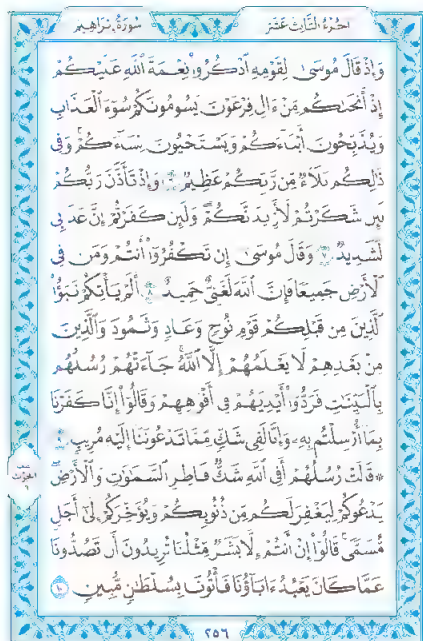 الجزء الثالث عشر
سورة إبراهيم
وَإِذْ قَالَ مُوسَىٰ لِقَوْمِهِ ٱذْكُرُوا۟ نِعْمَةَ ٱللَّهِ عَلَيْكُمْ
إِذْ أَنجَىٰكُم مِّنْ ءَالِ فِرْعَوْنَ يَسُومُونَكُمْ سُوٓءَ ٱلْعَذَابِ
وَيُذَبِّحُونَ أَبْنَآءَكُمْ وَيَسْتَحْيُونَ نِسَآءَكُمْ ۚ وَفِى
ذَٰلِكُم بَلَآءٌ مِّن رَّبِّكُمْ عَظِيمٌ ٦ وَإِذْ تَأَذَّنَ رَبُّكُمْ
لَئِن شَكَرْتُمْ لَأَزِيدَنَّكُمْ ۖ وَلَئِن كَفَرْتُمْ إِنَّ عَذَابِى
لَشَدِيدٌ ٧ وَقَالَ مُوسَىٰٓ إِن تَكْفُرُوٓا۟ أَنتُمْ وَمَن فِى
ٱلْأَرْضِ جَمِيعًا فَإِنَّ ٱللَّهَ لَغَنِىٌّ حَمِيدٌ ٨ أَلَمْ يَأْتِكُمْ نَبَؤُا۟
ٱلَّذِينَ مِن قَبْلِكُمْ قَوْمِ نُوحٍ وَعَادٍ وَثَمُودَ ۛ وَٱلَّذِينَ
مِنۢ بَعْدِهِمْ ۛ لَا يَعْلَمُهُمْ إِلَّا ٱللَّهُ ۚ جَآءَتْهُمْ رُسُلُهُم
بِٱلْبَيِّنَٰتِ فَرَدُّوٓا۟ أَيْدِيَهُمْ فِىٓ أَفْوَٰهِهِمْ وَقَالُوٓا۟ إِنَّا كَفَرْنَا
بِمَآ أُرْسِلْتُم بِهِۦ وَإِنَّا لَفِى شَكٍّ مِّمَّا تَدْعُونَنَآ إِلَيْهِ مُرِيبٍ ٩
۞ قَالَتْ رُسُلُهُمْ أَفِى ٱللَّهِ شَكٌّ فَاطِرِ ٱلسَّمَٰوَٰتِ وَٱلْأَرْضِ ۖ
يَدْعُوكُمْ لِيَغْفِرَ لَكُم مِّن ذُنُوبِكُمْ وَيُؤَخِّرَكُمْ إِلَىٰٓ أَجَلٍ
مُّسَمًّى ۚ قَالُوٓا۟ إِنْ أَنتُمْ إِلَّا بَشَرٌ مِّثْلُنَا تُرِيدُونَ أَن تَصُدُّونَا
عَمَّا كَانَ يَعْبُدُ ءَابَآؤُنَا فَأْتُونَا بِسُلْطَٰنٍ مُّبِينٍ ١٠
٢٥٦